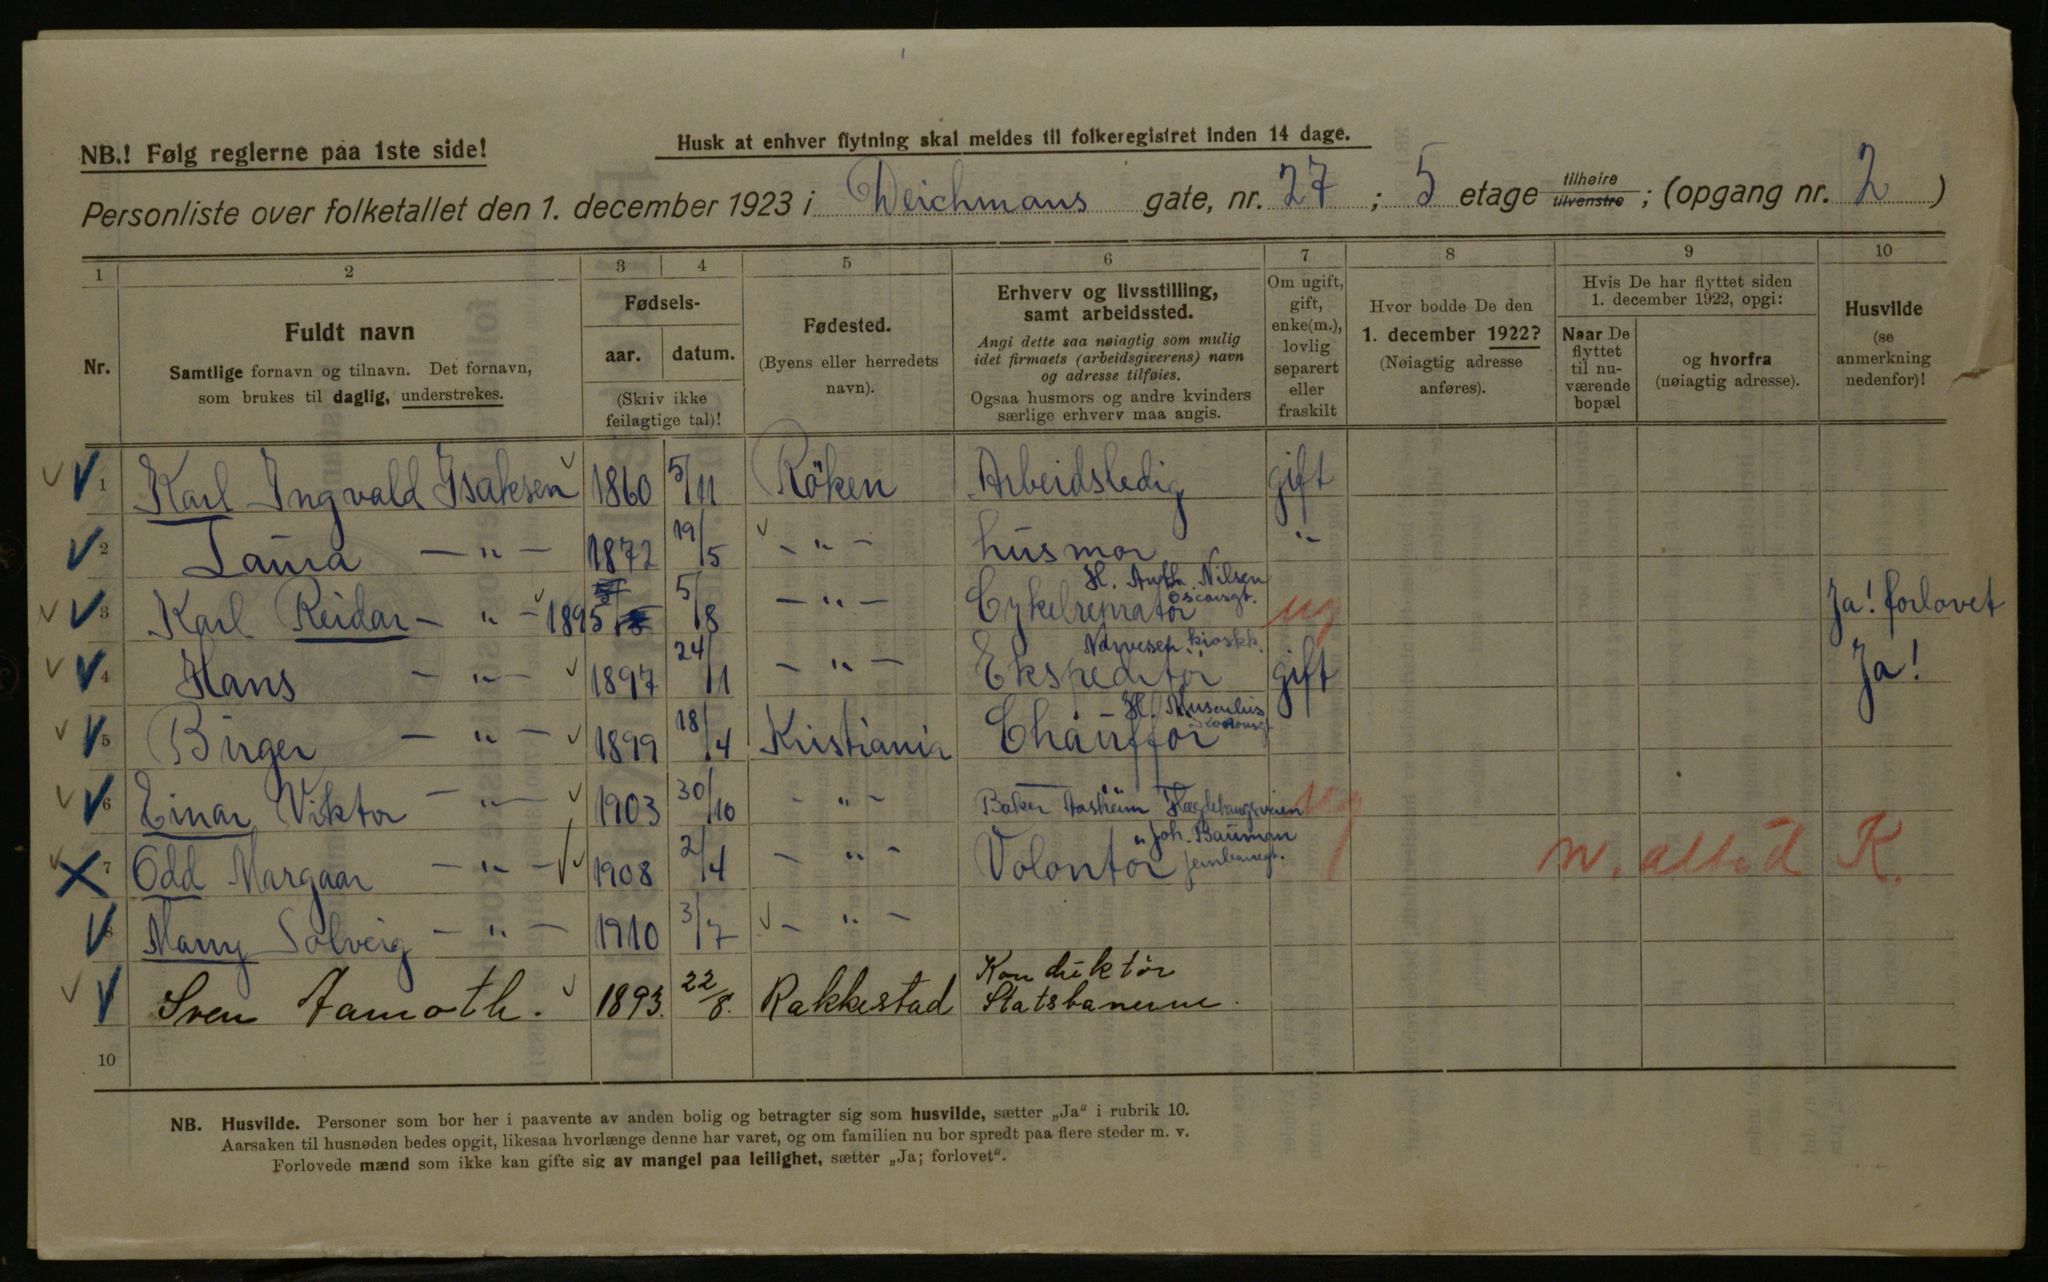 NB.! Følg reglerne paa 1ste side!
Husk at enhver flytning skal meldes til folkeregistret inden 14 dage.
Personliste over folketallet den 1. december 1923 i Deichmans gate, nr. 27 ; 5 etage tilhøire tilvenstre ; (opgang nr. 2 )
1 2 3 4 5 6 7 8 9 10
Nr.
Fuldt navn
Samtlige fornavn og tilnavn. Det fornavn,
som brukes til daglig, understrekes.
Fødsels-
aar. datum.
(Skriv ikke
feilagtige tal)!
Fødested.
(Byens eller herredets
navn).
Erhverv og livsstilling,
samt arbeidssted.
Angi dette saa nøiagtig som mulig
idet firmaets (arbeidsgiverens) navn
og adresse tilføies.
Ogsaa husmors og andre kvinders
særlige erhverv maa angis.
Om ugift,
gift,
enke(m.),
lovlig
separert
eller
fraskilt
Hvor bodde De den
1. december 1922?
(Nøiagtig adresse
anføres).
Hvis De har flyttet siden
1. december 1922, opgi:
Naar De
flyttet
til nu-
værende
bopæl
og hvorfra
(nøiagtig adresse).
Husvilde
(se
anmerkning
nedenfor)!
1 Karl Ingvald Isaksen 1860 5/11 Röken Arbeidsledig gift
2 Laura — " — 1872 19/5 — " — husmor "
3 Karl Reidar — " — 1895 5/8 — " — Cykelreparatör H. Anth. Nilsen Oscarsgt. ug Ja! forlovet
4 Hans — " — 1897 24/1 — " — Ekspeditör Narvesen kioskk. gift Ja!
5 Birger — " — 1899 18/4 Kristiania Chaufför
6 Einar Viktor — " — 1903 30/10 - " - Baker ug
7 Odd Margaar — " — 1908 2/4 — " - Volontör Joh. Bauman jernbanegt. n. altid K.
8 Manny Solveig — " — 1910 3/7 - " -
Sven Aamoth. 1893. 22/8. Rakkestad Konduktör
Statsbanerne.
10
NB. Husvilde. Personer som bor her i paavente av anden bolig og betragter sig som husvilde, sætter „Ja“ i rubrik 10.
Aarsaken til husnøden bedes opgit, likesaa hvorlænge denne har varet, og om familien nu bor spredt paa flere steder m. v.
Forlovede mænd som ikke kan gifte sig av mangel paa leilighet, sætter „Ja; forlovet“.